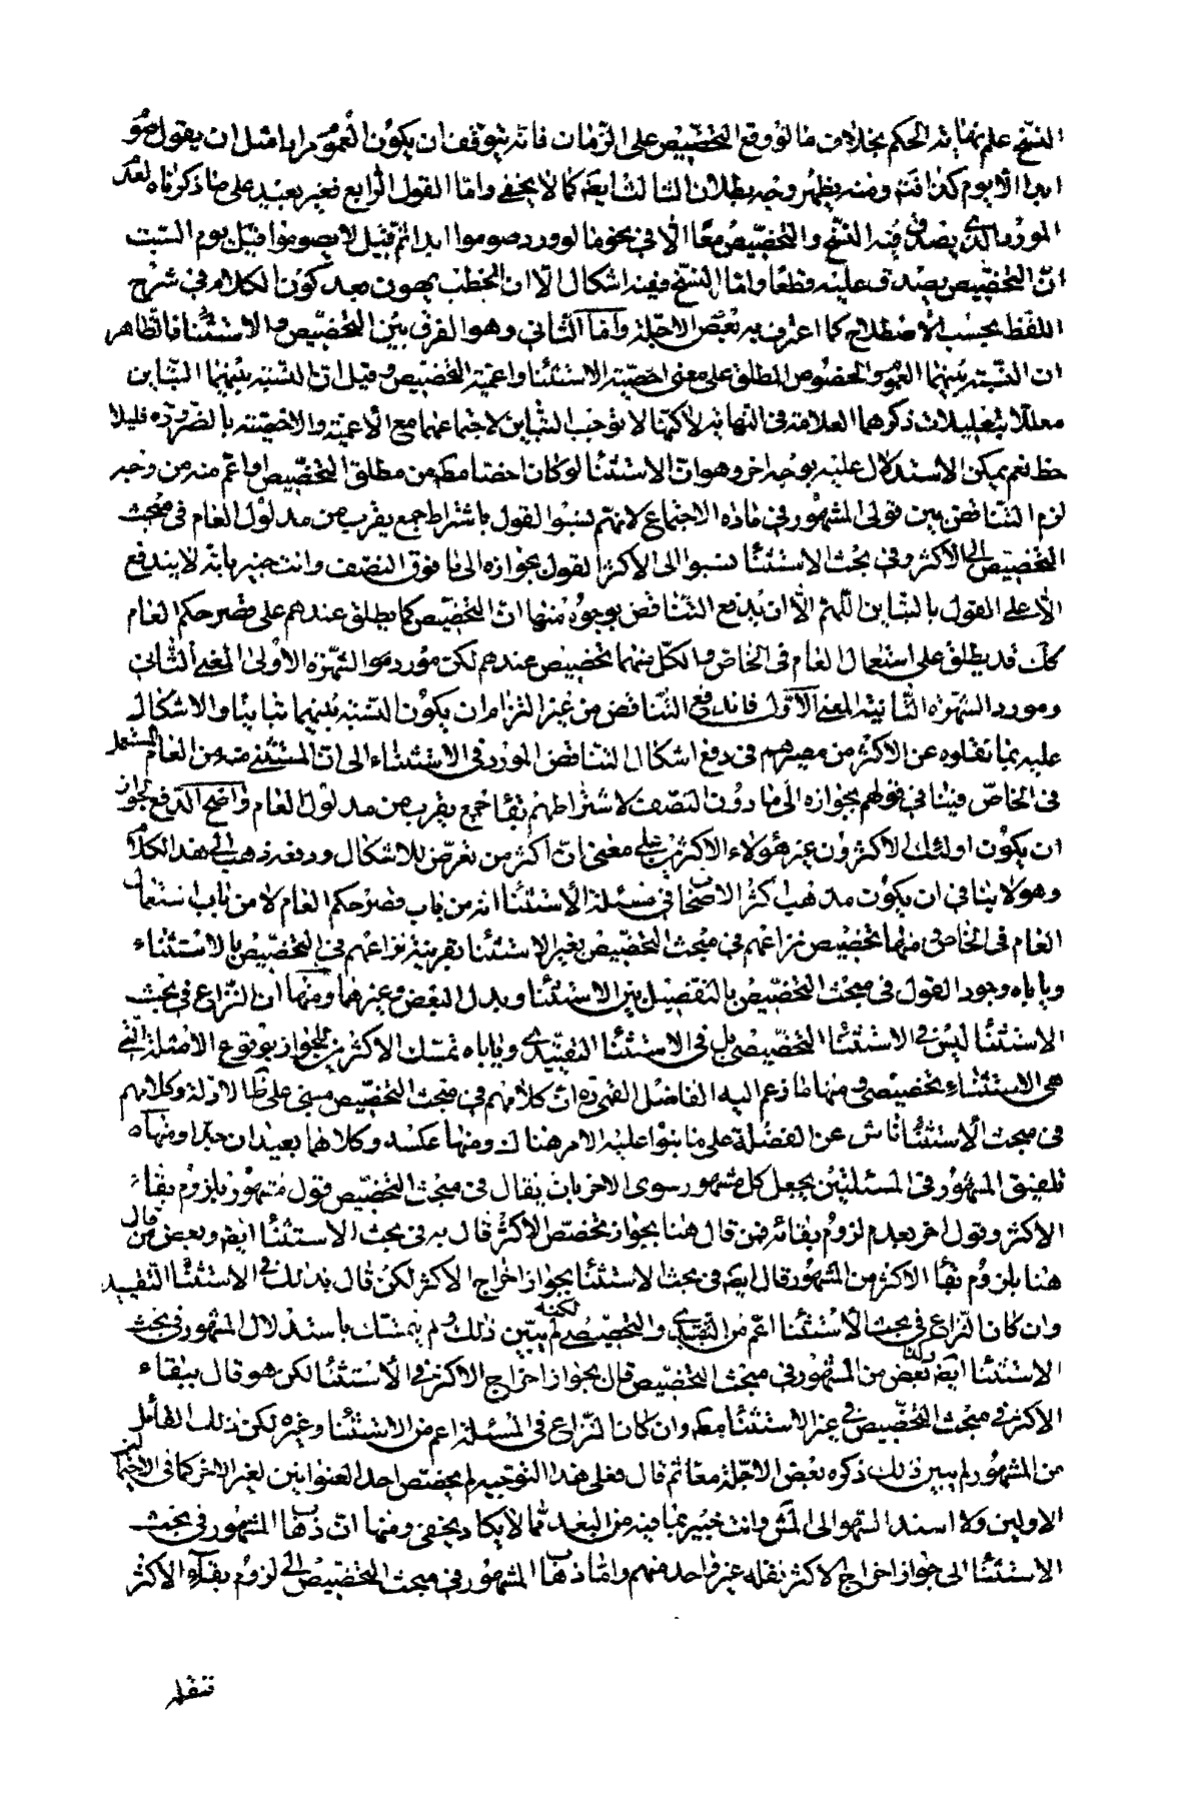 النسخ علم نهاية الحكم بخلاف ما لو وقع التخصيص على الزمان فانه يتوقف ان يكون العموم مرادا مثل ان يقول صوموا
ابدا الا يوم كذا فت ومنه يظهر وجه بطلان الثالث ايضا كما لا يخفى واما القول الرابع فغير بعيد على ما ذكرناه لفقد
المورد الذي يصدق فيه النسخ والتخصيص معا الا في نحو ما لو ورد صوموا ابدا ثم قيل لا يصوموا قبل يوم السبت
فان التخصيص يصدق عليه قطعا واما النسخ ففيه اشكال الا ان الخطب يهون بعد كون الكلام في شرح
اللفظ بحسب الاصطلاح كما اعترف به بعض الاجلة واما الثاني وهو الفرق بين التخصيص والاستثناء فالظاهر
ان النسبة بينهما العموم والخصوص المطلق على معنى اخصية الاستثناء واعمية التخصيص وقيل ان النسبة بينهما التباين
معللا بتعليلات ذكرها العلامة في النهاية لكنها لا توجب التباين لاجتماعها مع الاعمية والاخصية بالضرورة فليلا
حظ نعم يمكن الاستدلال عليه بوجه اخر وهو ان الاستثناء لو كان اخص مطلقا من مطلق التخصيص او اعم منه من وجه
لزم التناقض بين قولي المشهور في مادة الاجتماع لانهم نسبوا القول باشتراط جمع يقرب من مدلول العام في مبحث
التخصيص الى الاكثر وفي بحث الاستثناء نسبوا الى الاكثر القول بجوازه الى ما فوق النصف وانت خبير بانه لا يندفع
الا على القول بالتباين اللهم الا ان يدفع التناقض بوجوه منها ان التخصيص كما يطلق عندهم على قصر حكم العام
كك قد يطلق على استعمال العام في الخاص والكل منهما تخصيص عندهم لكن مورد الشهرة الاولى المعنى الثاني
ومورد الشهرة الثانية المعنى الاول فاندفع التناقض من غير التزام ان يكون النسبة بينهما تباينا والاشكال
عليه بما نقلوه عن الاكثر من مصيرهم في دفع اشكال التناقض المورد في الاستثناء الى ان المستثنى منه من العام المستعمل
في الخاص فينافي قولهم بجوازه الى ما دون النصف لاشتراطهم بقاء جمع يقرب من مدلول العام واضح الدفع لجواز
ان يكون اولئك الاكثرون غير هؤلاء الاكثرين على معنى ان اكثر من تعرض للاشكال ورفعه ذهب الى هذا الكلام
وهو لا ينافي ان يكون مذهب اكثر الاصحاب في مسئلة الاستثناء انه من باب قصر حكم العام لا من باب استعمال
العام في الخاص ومنها تخصيص نزاعهم في مبحث التخصيص بغير الاستثناء بقرينة نزاعهم في التخصيص بالاستثناء
وياباه وجود القول في مبحث التخصيص بالتفصيل بين الاستثناء وبدل البعض وغيرهما ومنها ان النزاع في بحث
الاستثناء ليس في الاستثناء التخصيصي بل في الاستثناء التقييدي وياباه تمسك الاكثرين للجواز بوقوع الامثلة التي
هي الاستثناء تخصيصي ومنها ما زعم اليه الفاضل القمي ره ان كلامهم في مبحث التخصيص مبني على ظاهر الادلة وكلامهم
في مبحث الاستثناء ناش عن الغفلة على ما بنوا عليه الامر هناك ومنها عكسه وكلاهما بعيدان جدا ومنها
تلفيق المشهور في المسئلتين بجعل كل مشهور سوى الاخر بان يقال في مبحث التخصيص قول مشهور بلزوم بقاء
الاكثر وقول اخر بعدم لزوم بقائه فمن قال هنا بجواز تخصيص الاكثر قال به في بحث الاستثناء ايضا وبعض من قال
هنا بلزوم بقاء الاكثر من المشهور قال ايضا في بحث الاستثناء بجواز اخراج الاكثر لكن قال بذلك في الاستثناء التقييدي
وان كان النزاع في بحث الاستثناء اعم من التقييدي والتخصيصي لكنه لم يبين ذلك ولم يتمسك باستدلال المشهور في بحث
الاستثناء ايضا وكذا بعض من المشهور في مبحث التخصيص قال بجواز اخراج الاكثر في الاستثناء لكن هو قال ببقاء
الاكثر في مبحث التخصيص في غير الاستثناء مطلقا وان كان النزاع في المسئلة اعم من الاستثناء وغيره لكن ذلك القائل
من المشهور لم يبين ذلك ذكره بعض الاجلة معا ثم قال فعلى هذا التوجيه لم يختص احد العنوانين لغير الاخر كما في الاحتمالين
الاولين ولا اسند السهو الى المش وانت خبير بما فيه من البعد مما لا يكاد يخفى ومنها ان ذهاب المشهور في بحث
الاستثناء الى جواز اخراج الاكثر نقله غير واحد منهم واما ذهاب المشهور في مبحث التخصيص الى لزوم بقاء الاكثر
فنقله